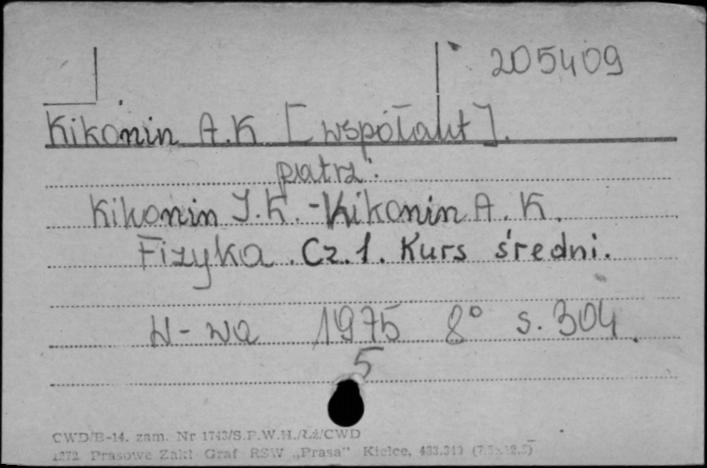 205409
Kikonin A.K [współaut].
patrz:
Kikonin I.K. - Kikonin A. K.
Fizyka. Cz. 1. Kurs średni.
W-wa 1975 8° s. 304.
5
CWD/B-14. zam. Nr 1743/S.P.W.H./Łź/CWD
Prasowe Zakł Graf RSW „Prasa" Kielce,